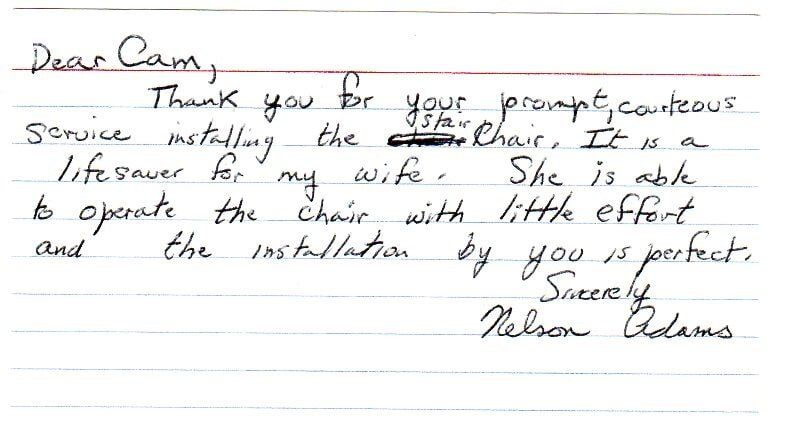 Dear Cam,
Thank you for your prompt, courteous
service installing the stair Chair. It is a
lifesaver for my wife. She is able
to operate the chair with little effort
and the installation by you is perfect.
Sincerely
Nelson Adams